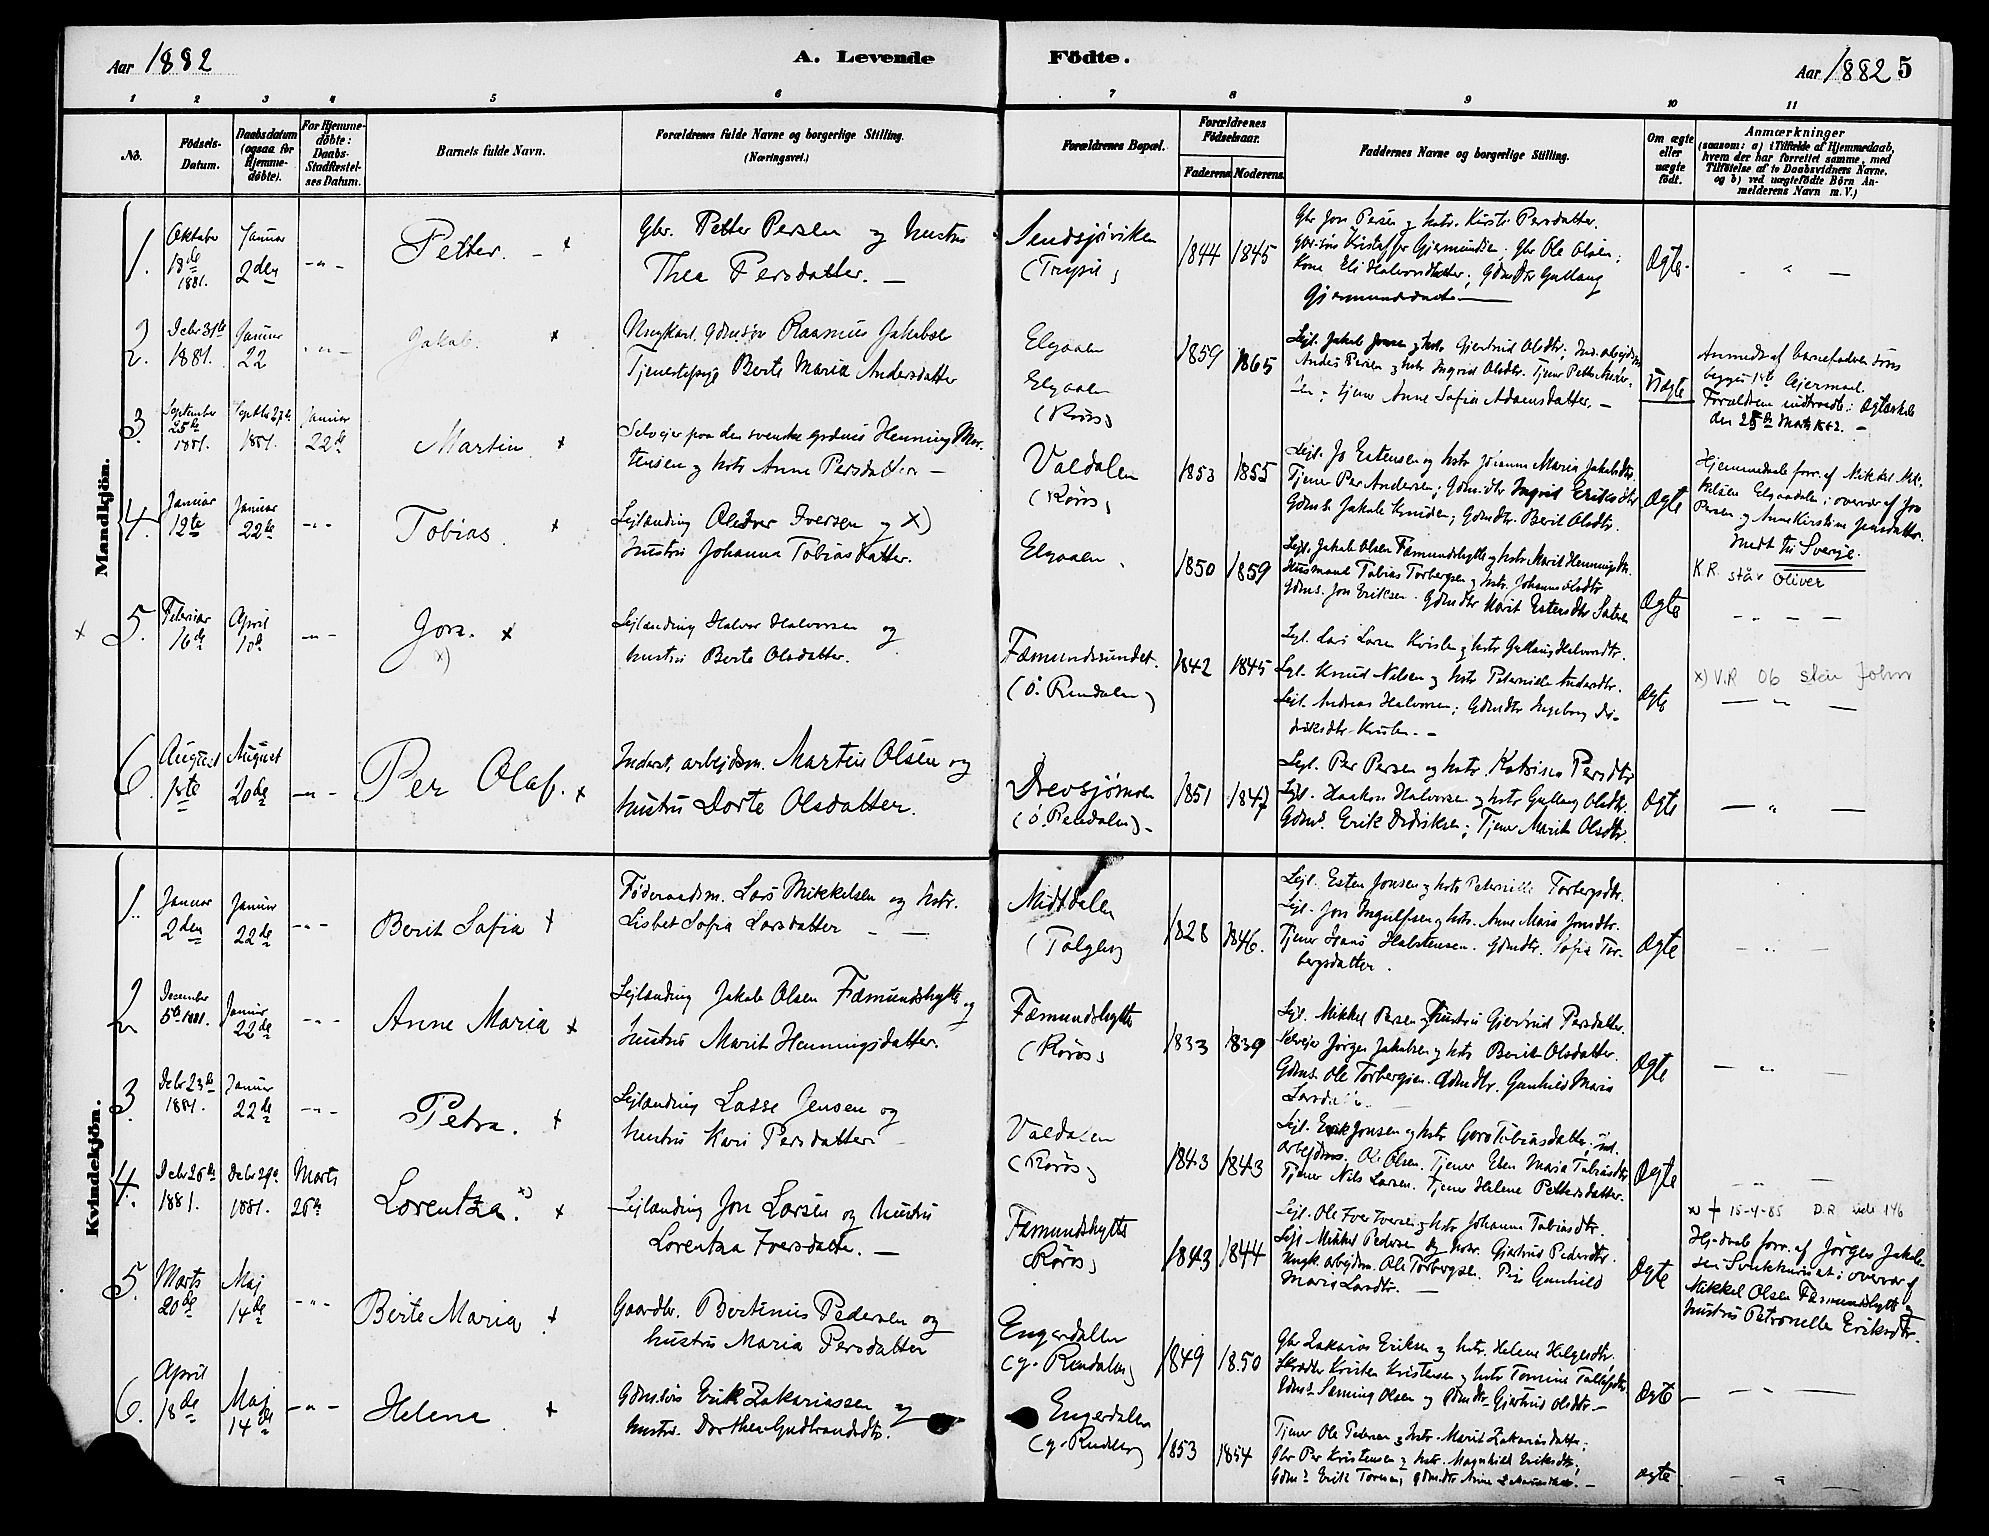 Aar 1882
A. Levende Födte.
Aar 1882 5
1 2 3 4 5 6 7 8 9 10 11
No.
Födsels-Datum.
Daabsdatum (ogsaa for Hjemme-döbte).
For Hjemme-döbte: Daabs-Stadfæstel-ses Datum.
Barnets fulde Navn.
Forældrenes fulde Navne og borgerlige Stilling. (Næringsvei.)
Forældrenes Bopæl.
Forældrenes Födselsaar.
Faderens Moderens
Faddernes Navne og borgerlige Stilling.
Om ægte eller uægte födt.
Anmærkninger
(saasom: a) i Tilfælde af Hjemmedaab, hvem der har forrettet samme, med Tilföielse af to Daabsvidners Navne. og b) ved uægtefödte Börn An-melderens Navn m. V.)
Mandkjön.
1. Oktober 18de 1881. Januar 2den -"- Petter.
Gbr. Petter Persen og hustru
Thea Persdatter. —
Sendsjøviken
(Trysil)
1844 1845
Gbr Jon Persen og hstr. Kirsti Persdatter.
Gbrsøn Kristoffer Gjermundsen; Gbr Ole Olsen;
Kone Eli Halvorsdatter; Gdmdtr Gullaug
Gjermundsdatter
Ægte.
2. Debr 31te 1881. Januar 22 -"- Jakob.
Ungkarl Gdmsøn Rasmus Jakobsen
Tjenestepige Berte Maria Andersdatter
Elgaaen
Elgaaen
(Røros)
1859 1865
Lejl. Jakob Jensen og hstr Gjertrud Olsdtr; Ind. arbejdsm
Anders Persen og hstr Ingrid Olsdtr. Tjener Petter Ander-
sen; tjener Anne Sofia Adamsdatter. —
Uægte
Anmeldt af barnefaderen som
begges 1ste Lejermaal.
Forældrene indtraadte i Ægteskab
den 25de Marts 1882. —
3. September 25de 1881. Septbr 27de 1881. Januar 22de Martin
Selvejer paa den svenske grændse Henning Mor-
tensen og hstr Anne Persdatter —
Valdalen
(Røros)
1853 1855
Lejl. Jo Estensen og hstr Johanna Maria Jakobsdtr.
Tjener Per Andersen; Gdmdtr Ingrid Eriksdtr
Gdms. Jakob Knudsen; Gdmdtr. Berit Olsdtr.
Ægte
Hjemmedaab forr. af Mikkel Mik-
kelsen Elgaadalen i overvær af Jon
Persen og Anne Kirstine Jensdatter.
Meldt til Sverige.
4. Januar 12te Januar 22de -"- Tobias.
Lejlending Oliver Iversen og x)
hustru Johanna Tobiasdatter.
Elgaaen
1850 1859
Lejl. Jakob Olsen Fæmundshytte og hstr Marit Henningsdtr.
Husmand Tobias Torbergsen og hstr. Johanna Olsdtr
Gdms. Jon Eriksen. Gdmdtr Marit Estensdtr
Ægte
K.R. står Oliver
x 5. Februar 16de April 10de -"- Jon. x)
Lejlending Halvor Halvorsen og
hustru Berte Olsdatter.
Fæmundssundet.
(ø. Rendalen)
1842 1845
Lejl. Lars Larsen Kvislen og hstr Gullaug Halvorsdtr.
Lejl. Knud Nilsen og hstr Peternille Andersdtr.
Lejl. Andreas Halvorsen; Gdmdtr Ingeborg Di-
driksdtr
Ægte
x) V.R Ob står John
6. August 1ste August 20de -"- Per Olaf.
Inderst, arbejdsm. Martin Olsen og
hustru Dorte Olsdatter.
Drevsjømoen
(ø. Rendalen) -
1851 1847
Lejl. Per Persen og hstr. Katrina Persdtr
Lejl. Haakon Halvorsen og hstr Gullaug Olsdtr.
Gdms. Erik Didriksen; Tjener Marit Olsdtr.
Ægte
Kvindekjön.
1. Januar 2den Januar 22de -"- Berit Sofia
Føderaadsm. Lars Mikkelsen og hstr.
Lisbet Sofia Larsdatter
Midtdalen
(Tolgen)
1828 1846.
Lejl. Esten Jonsen og hstr Peternille Torbergsdtr.
Lejl. Jon Ingulfsen og hstr. Anne Maria Jonsdtr.
Tjener Halstensen. Gdmdtr. Sofia Tor-
bergsdatter.
Ægte
2 December 5te 1881. Januar 22de -"- Anne Maria
Lejlending Jakob Olsen Fæmundshytte og
hustru Marit Henningsdatter.
Fæmundshytte
(Røros)
1833 1839
Lejl. Mikkel Persen og hustru Gjertrud Persdatter.
Selvejer Jørgen Jakobsen og hstr Berit Olsdatter.
Gdms. Ole Torbergsen. Gdmdtr. Gunhild Maria
Larsdatter
Ægte
3. Debr 23de 1881. Januar 22de -"- Petra.
Lejlending Lasse Jensen og
hustru Kari Persdatter
Valdalen
(Røros)
1843 1843
Lejl. Erik Jonsen og hstr Goro Tobiasdatter; ind.
arbejdsm. Ole Olsen. Tjener Elen Maria Tobiasdtr
Tjener Nils Larsen. Tjener Helene Pettersdatter.
Ægte
4. Debr 26de 1881. Debr 29de 1881. Marts 26de Lorentza. x)
Lejlending Jon Larsen og hustru
Lorentza Iversdatter. —
Fæmundshytte
(Røros)
1843 1844
Lejl. Ole Iver Iversen og hstr Johanna Tobiasdtr.
Lejl Mikkel Pedersen og hstr. Gjertrud Pedersdtr.
Ungk. arbejdsm. Ole Torbergsen. Pige Gunhild
Maria Larsdtr.
Ægte
x) † 15-4-85 D.R side 146
Hj.daab forr. af Jørgen Jakob-
sen i overvær af
Mikkel Olsen Fæmundshytte og
hustru Petronelle Eriksdtr.
5. Marts 20de Maj 14de -"- Berte Maria
Gaardbr. Bertinius Pedersen og
hustru Maria Persdatter
Engerdalen
(y. Rendalen)
1849 1850
Gbr Zakarias Eriksen og hstr. Helene Helgesdtr.
Skrædder Kristen Kristensen og hstr Tomine Tollefsdtr
Gdms. Seming Olsen og Gdmdtr Gjertrud Olsdtr —
Ægte
6. April 18de Maj 14de -"- Helena
Gdmsøn Erik Zakariassen og
hustru. Dorthea Gudbrandsdtr.
Engerdalen
(y. Rendalen)
1853 1854
Tjener Ole Pedersen og hstr. Marit Zakariasdatter;
Gbr Per Kristensen og hstr. Magnhild Eriksdtr;
Gdms. Erik Toresen, Gdmdtr Anne Zakariasdtr. —
Ægte